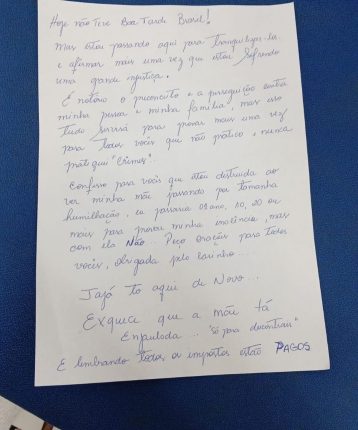 Hoje não Teve Boa Tarde Brasil!
Mas estou passando aqui para tranquilizá-la
e afirmar mais uma vez que estou Sofrendo
uma grande injustiça.
É notório o preconceito e a perseguição contra
minha pessoa e minha família, mas isso
tudo servirá para provar mais uma vez
para todos vocês que não pratico e nunca
pratiquei "Crimes".
Confesso para vocês que estou destruída ao
ver minha mãe passando por tamanha
humilhação, eu passaria 01 ano, 10, 20 ou
mais para provar minha inocência, mas
com ela NÃO... Peço orações para todos
vocês, obrigada pelo carinho...
Jajá tô aqui de Novo...
Exquece que a mãe tá
Enjaulada... "só para descontrair"
E lembrando todos os impostos estão PAGOS